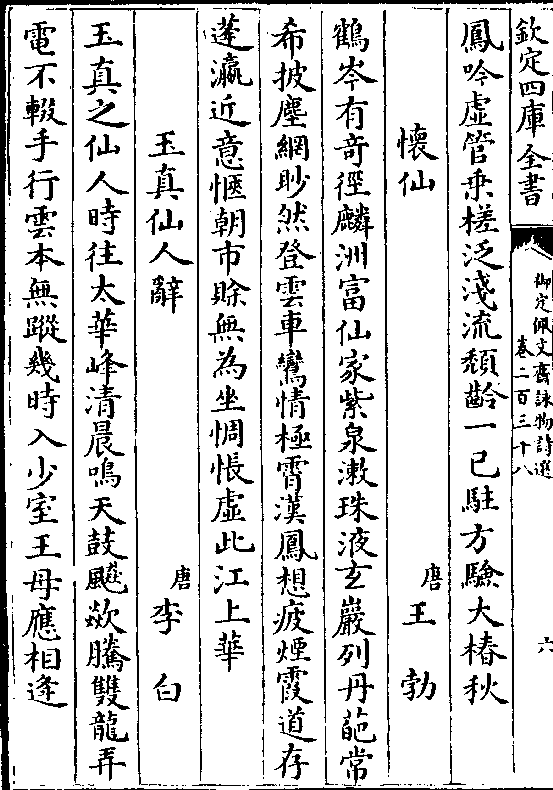 欽定四庫全書
御定佩文齋詠物詩選
卷二百三十八
六
鳳吟虛管乗槎泛淺流頽齡一已駐方驗大椿秋
懷仙
唐王勃
鶴岑有奇徑麟洲富仙家紫泉漱珠液玄巖列丹葩常
希披塵網眇然登雲車鸞情極霄漢鳳想疲煙霞道存
蓬瀛近意愜朝市賖無為坐惆悵虛此江上華
玉真仙人辭
唐李白
玉真之仙人時往太華峰清晨鳴天鼓飈欻騰雙龍弄
電不輟手行雲本無蹤幾時入少室王母應相逢